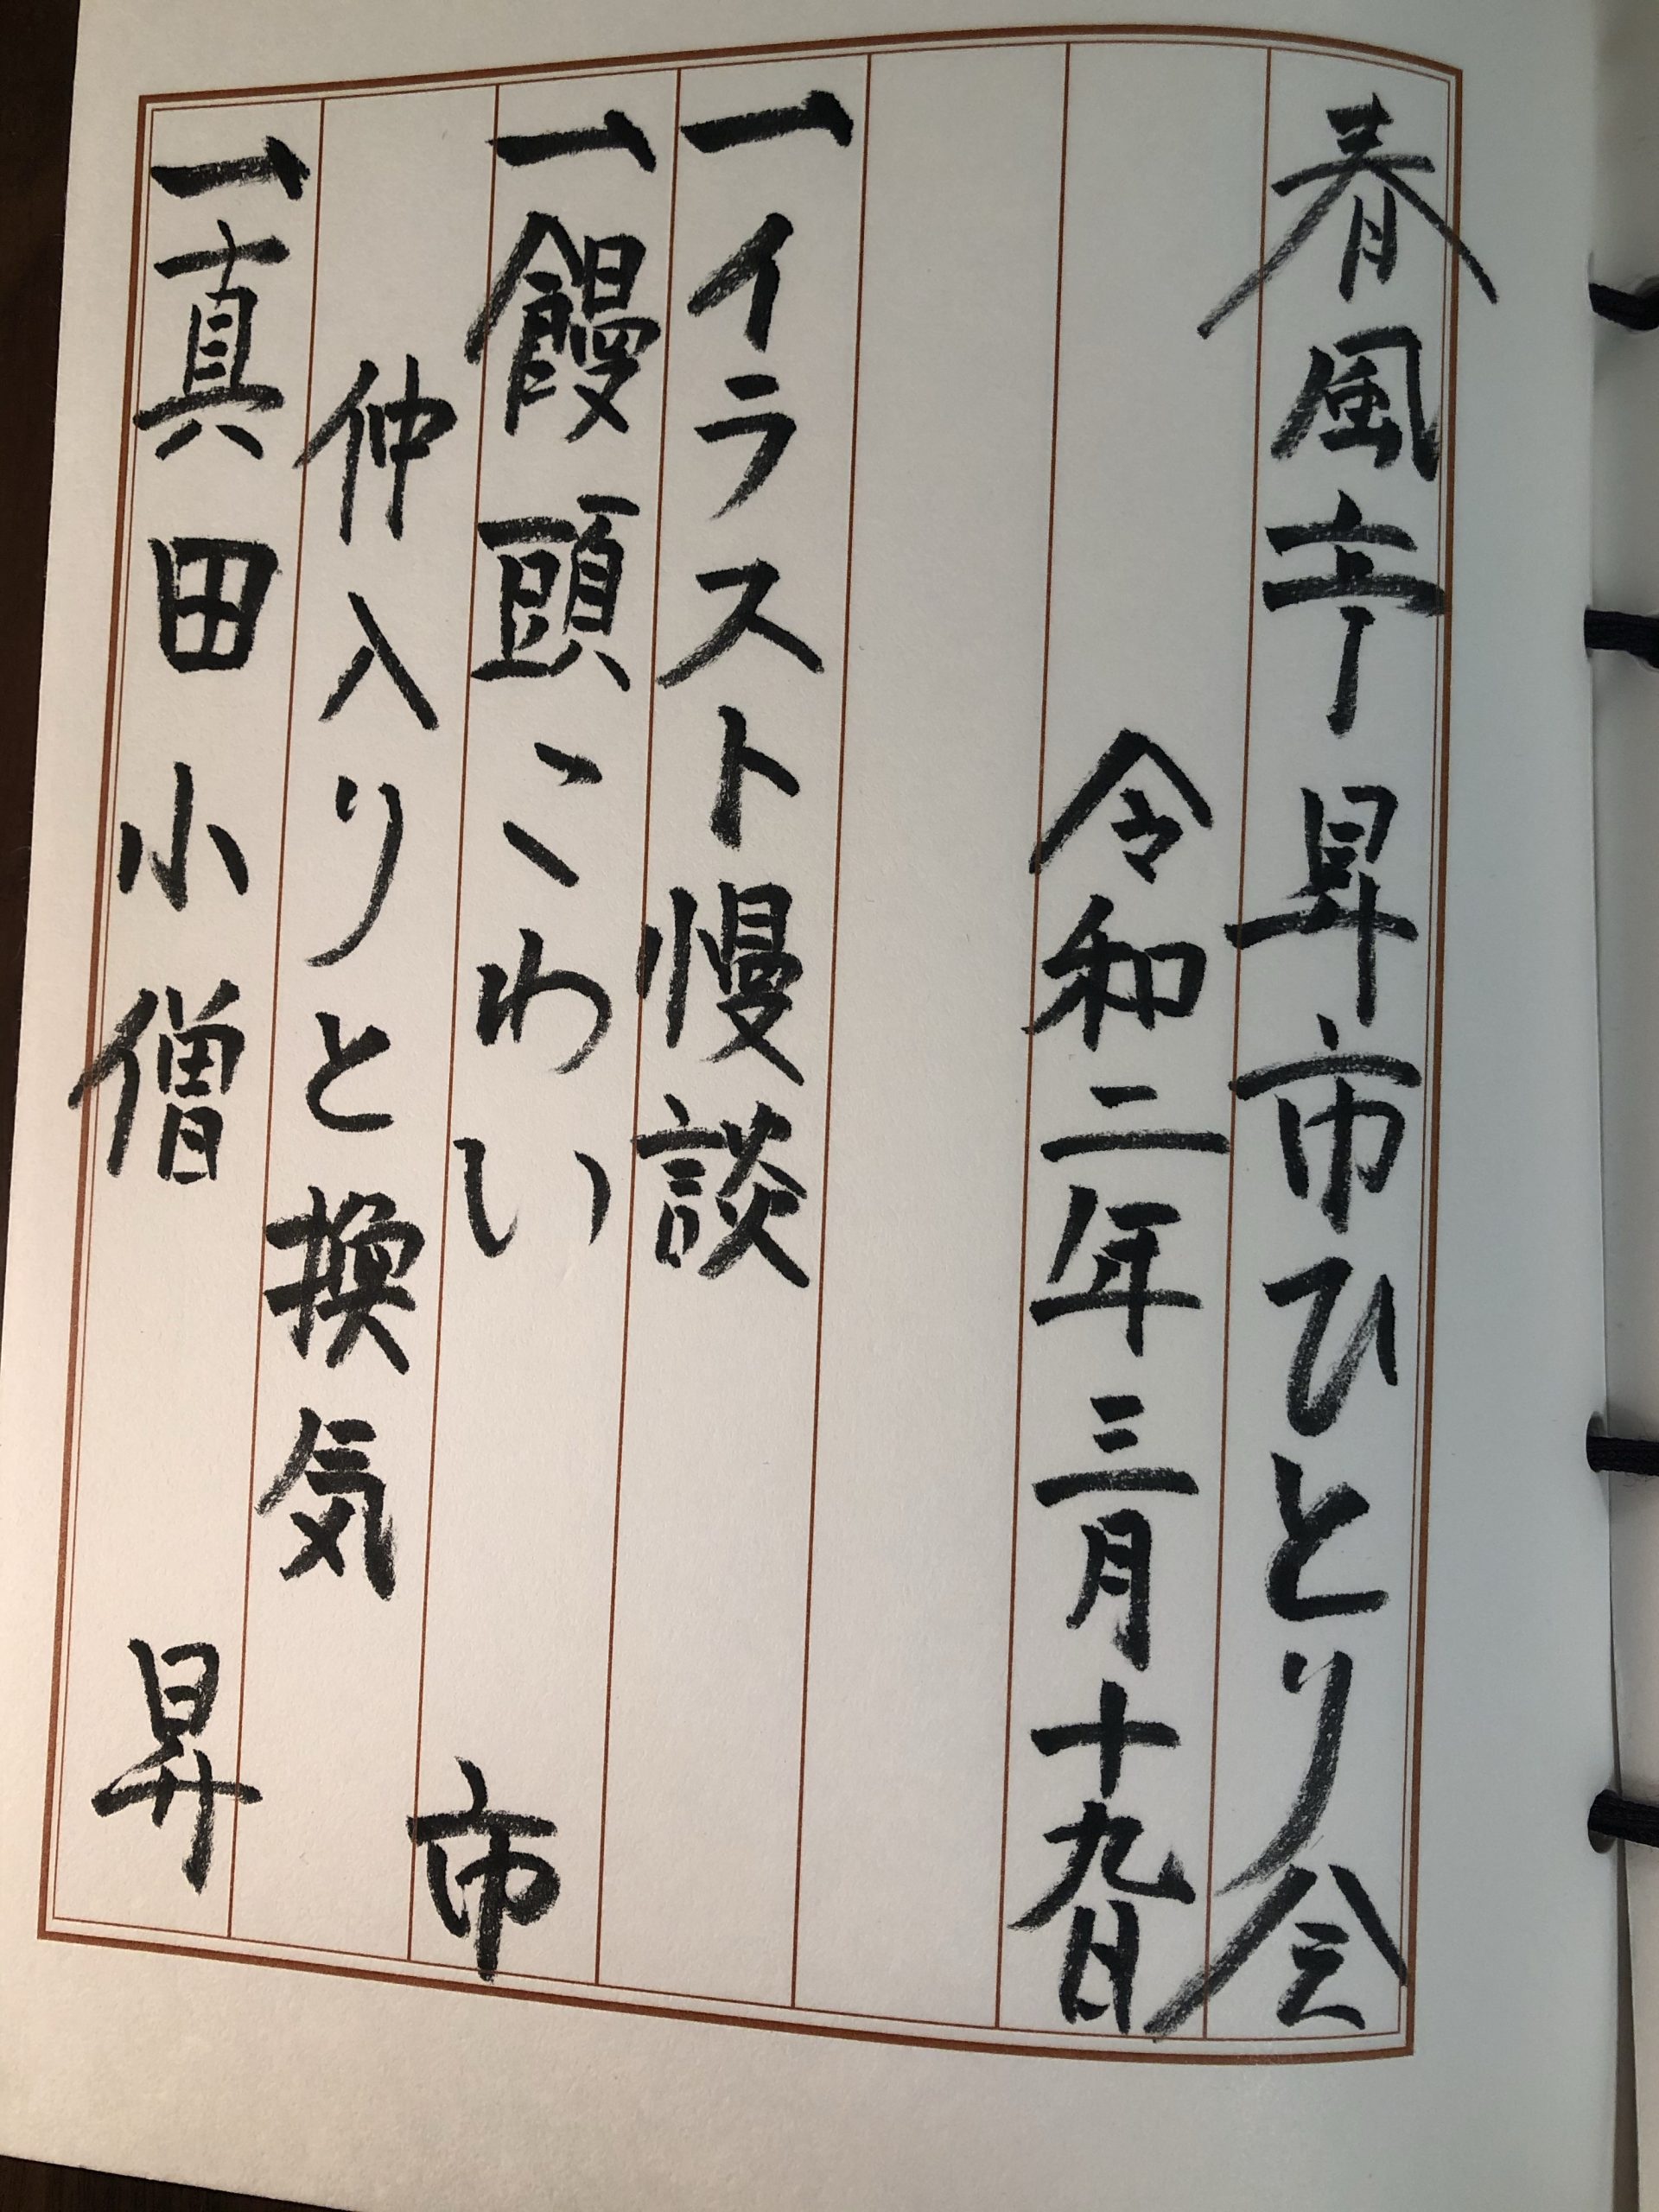 春風亭昇市ひとり会
令和二年三月十九日
一イラスト慢談
一饅頭こわい 市
仲入りと換気
一真田小僧 昇